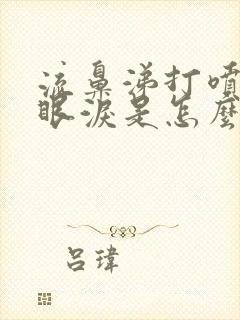 流鼻涕打噴
眼淚是怎麼
呂瑋